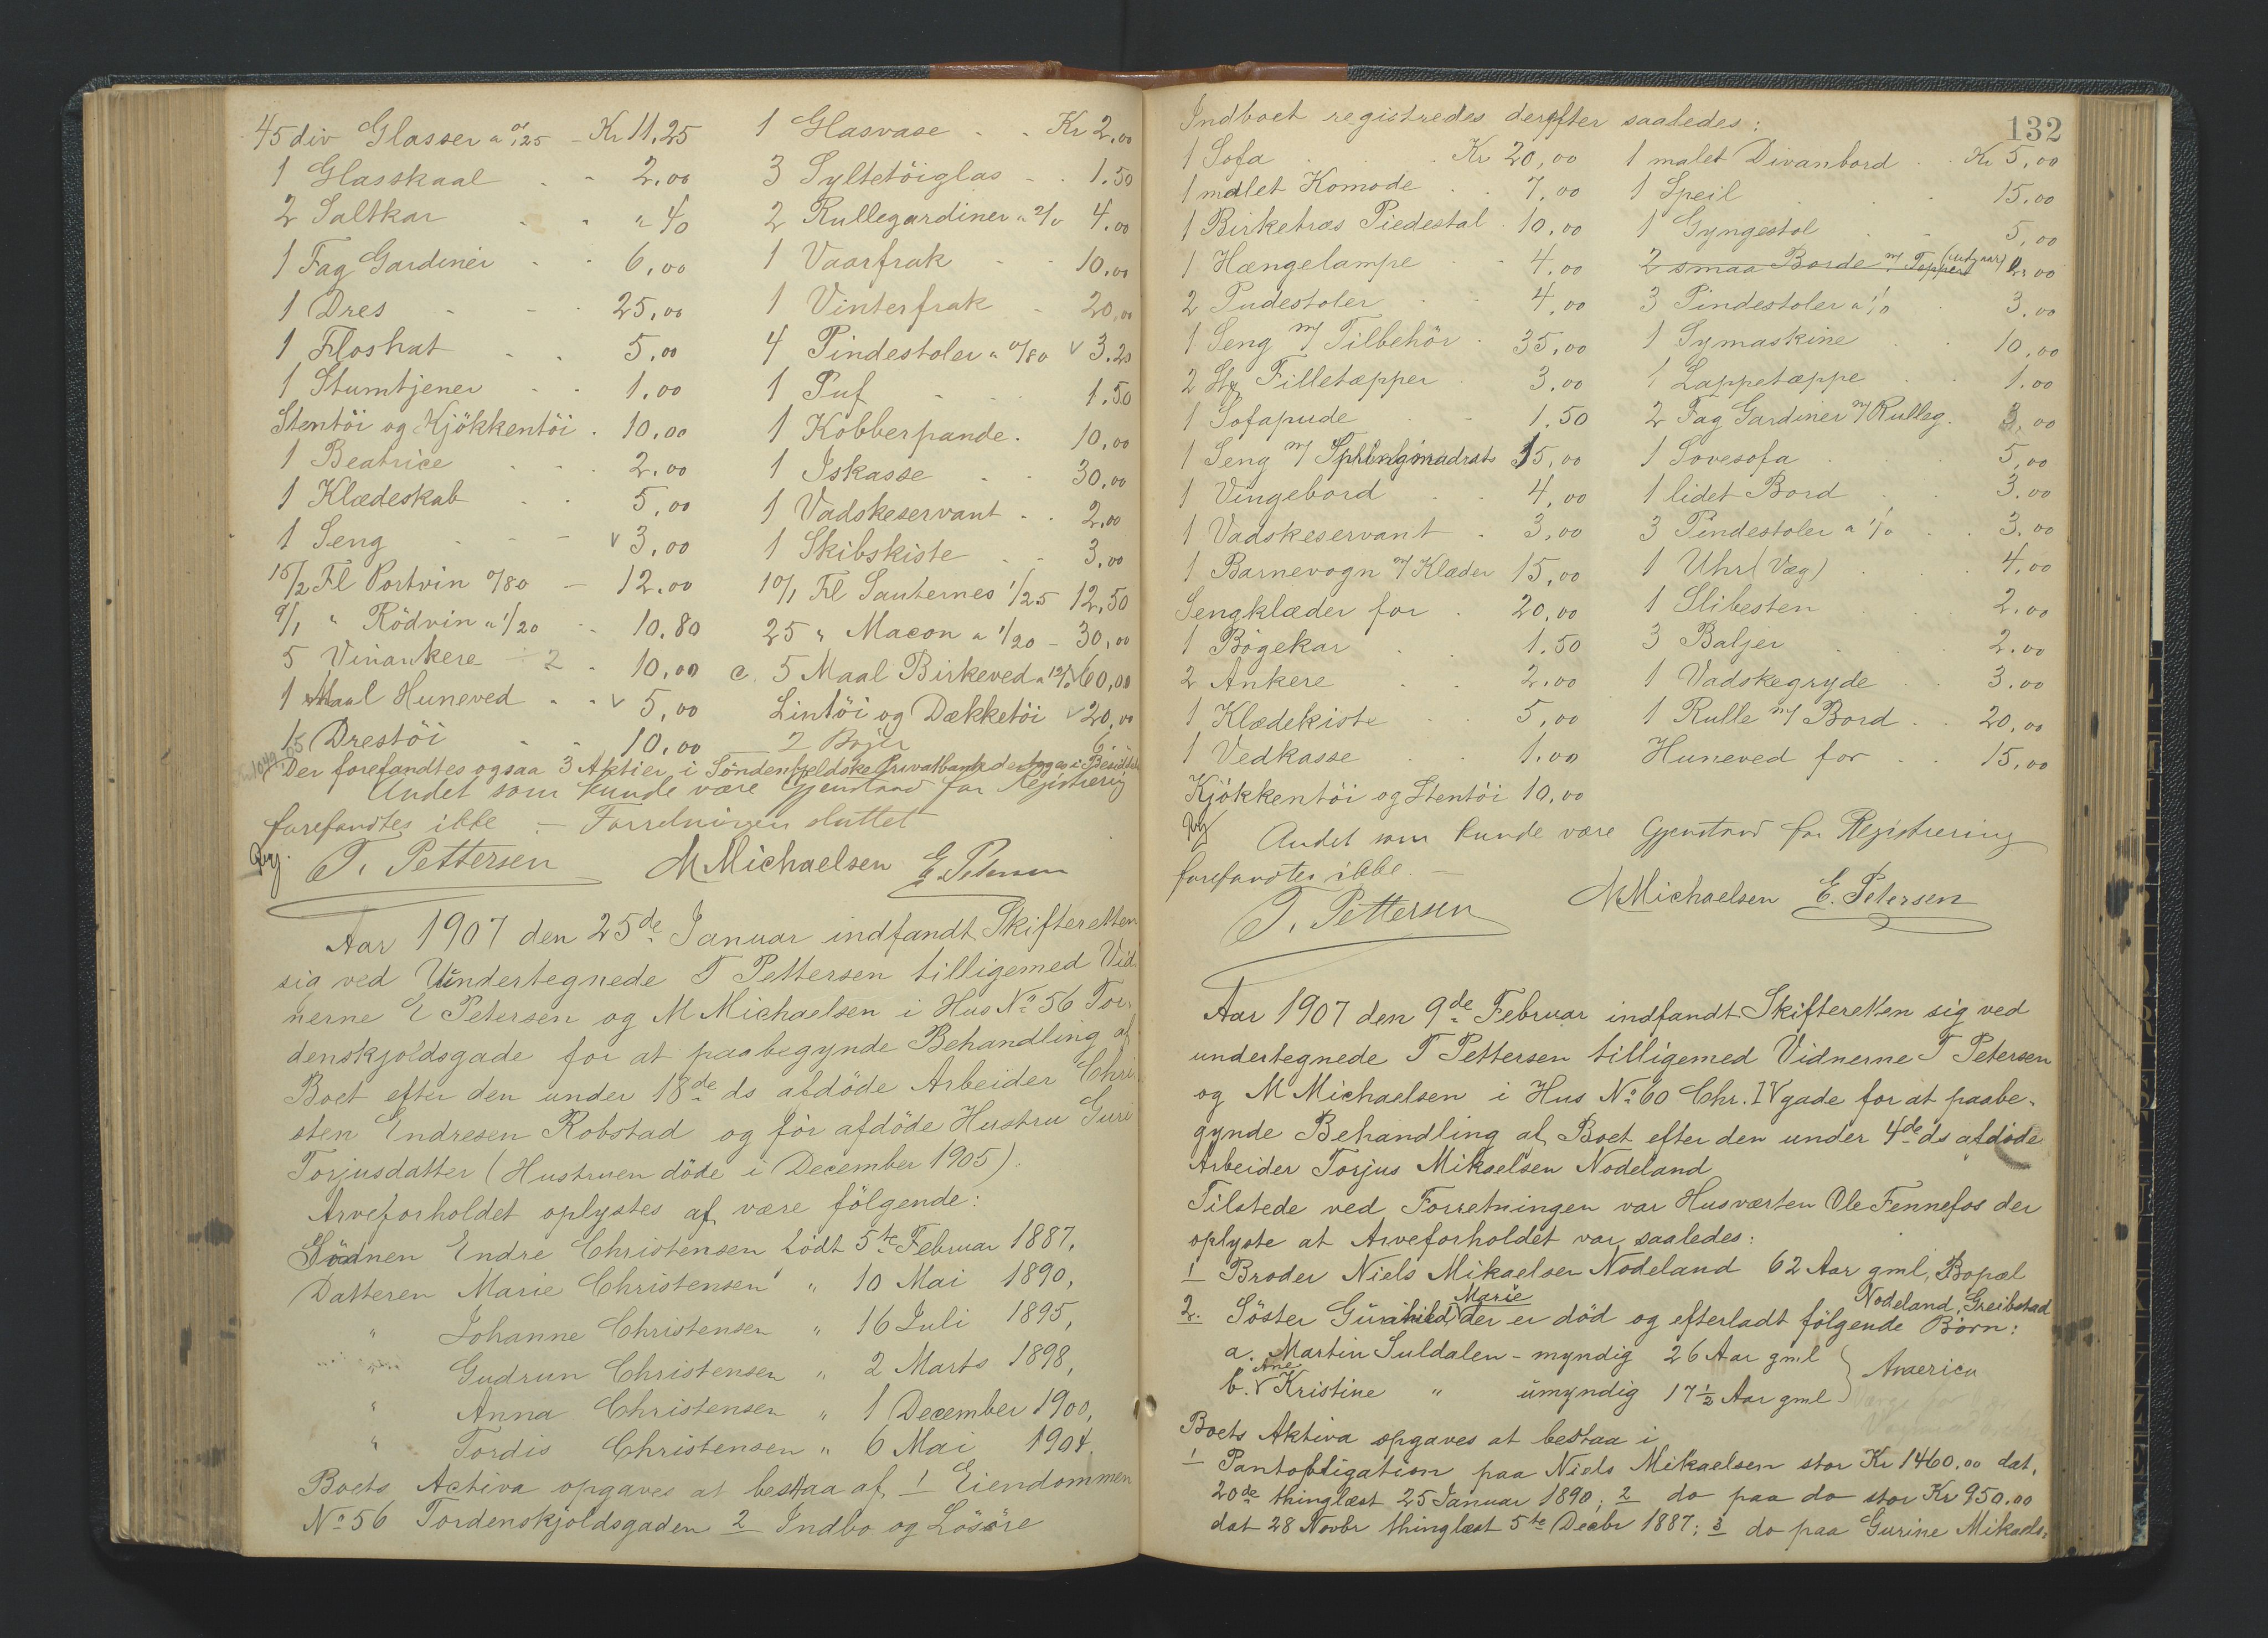 45 div Glasser a 0,25 - Kr 11,25 1 Glasvase Kr 2,00
1 Glasskaal 2,00 3 Syltetöiglas 1.50
2 Saltkar " 40 2 Rullegardiner a 2/0 4,00
1 Fag Gardiner 6,00 1 Vaarfrak 10,00
1 Dres 25,00 1 Vinterfrak 20,00
1 Floshat 5,00 4 Pindestoler a 0/80 v 3.20
1 Stumtjener 1,00 1 Puf 1.50
Stentöi og Kjökkentöi 10,00 1 Kobberpande 10,00
1 Beatrice 2,00 1 Iskasse 30,00
1 Klædeskab 5,00 1 Vadskeservant 2,00
1 Seng v 3,00 1 Skibskiste 3,00
15/2 Fl Portvin 0/80 - 12,00 10/1 Fl Sauternes 1/25 12,50
9/1 " Rödvin a 1/20 10.80 25 " Macon a 1/20 - 30,00
5 Vinankere 2 10,00 c. 5 Maal Birkeved a 12/0 60,00
1 Maal Huneved v 5,00 Lintöi og Dækketöi v 20,00
1 Drestöi 10,00 2 Bøjer 6.
Der forefandtes ogsaa 3 Aktier i Söndenfjeldske Privatbank der toges i Besiddelse
Andet som kunde være Gjenstand for Registrering
forefandtes ikke. - Forretningen sluttet
T. Pettersen M Michaelsen E. Petersen
Aar 1907 den 25de Januar indfandt Skifteretten
sig ved Undertegnede T Pettersen tilligemed Vid-
nerne E Petersen og M Michaelsen i Hus No 56 Tor-
denskjoldsgade for at paabegynde Behandling af
Boet efter den under 18de ds afdöde Arbeider Chri-
sten Endresen Robstad og för afdöde Hustru Guri
Torjusdatter (Hustruen döde i December 1905).
Arveforholdet oplystes af være fölgende:
Sönnen Endre Christensen födt 5te Februar 1887,
Datteren Marie Christensen " 10 Mai 1890,
" Johanne Christensen " 16 Juli 1895,
Gudrun Christensen " 2 Marts 1898,
" Anna Christensen " 1 December 1900,
" Tordis Christensen " 6 Mai 1904.
Boets Activa opgaves at bestaa af 1 Eiendommen
No 56 Tordenskjoldsgaden 2 Indbo og Lösöre
132
Indboet registredes derefter saaledes:
1 Sofa Kr 20,00 1 malet Divanbord Kr 5,00
1 malet Komode 7,00 1 Speil 15,00
1 Birketræs Piedestal 10,00 1 Gyngestol 5,00
1 Hængelampe 4,00 2 smaa Borde m/ Tepper (udgaar) 00
2 Pudestoler 4,00 3 Pindestoler a 1/0 3,00
1 Seng m/ Tilbehör 35,00 1 Symaskine 10,00
2 Stk Filletæpper 3,00 1 Lappetæppe 1.00
1 Sofapude 1.50 2 Fag Gardiner m/ Rulleg. 3,00
1 Seng m/ Springmadrats 15,00 1 Sovesofa 5,00
1 Vingebord 4,00 1 lidet Bord 3.00
1 Vadskeservant 3,00 3 Pindestoler a 1/0 3.00
1 Barnevogn m/ Klæder 15,00 1 Uhr (Væg) 4,00
Sengklæder for 20,00 1 Slibesten 2,00
1 Bögekar 1.50 3 Baljer 2,00
2 Ankere 2.00 1 Vadskegryde 3.00
1 Klædekiste 5,00 1 Rulle m/ Bord 20,00
1 Vedkasse 1.00 Huneved for 15,00
Kjökkentöi og Stentöi 10,00
Andet som kunde være Gjenstand for Registrering
forefandtes ikke. -
T. Pettersen M Michaelsen E. Petersen
Aar 1907 den 9de Februar indfandt Skifteretten sig ved
undertegnede T Pettersen tilligemed Vidnerne T Petersen
og M Michaelsen i Hus No 60 Chr. IV gade for at paabe-
gynde Behandling af Boet efter den under 4de ds afdöde
Arbeider Torjus Mikaelsen Nodeland
Tilstede ved Forretningen var Husværten Ole Fennefos der
oplyste at Arveforholdet var saaledes:
1 Broder Niels Mikaelsen Nodeland 62 Aar gml, Bopæl
Nodeland, Greibstad
2. Söster Gunhild Marie der er död og efterladt fölgende Börn:
a. Martin Suldalen - myndig 26 Aar gml } America
b. Ane Kristine " umyndig 17 1/2 Aar gml
Boets Aktiva opgaves at bestaa i
1 Pantobligation paa Niels Mikaelsen stor Kr 1460.00 dat.
20de thinglæst 25 Januar 1890; 2 do paa do stor Kr 950.00
dat 28 Novbr thinglæst 5te Decbr 1887; 3 do paa Gurine Mikaels-